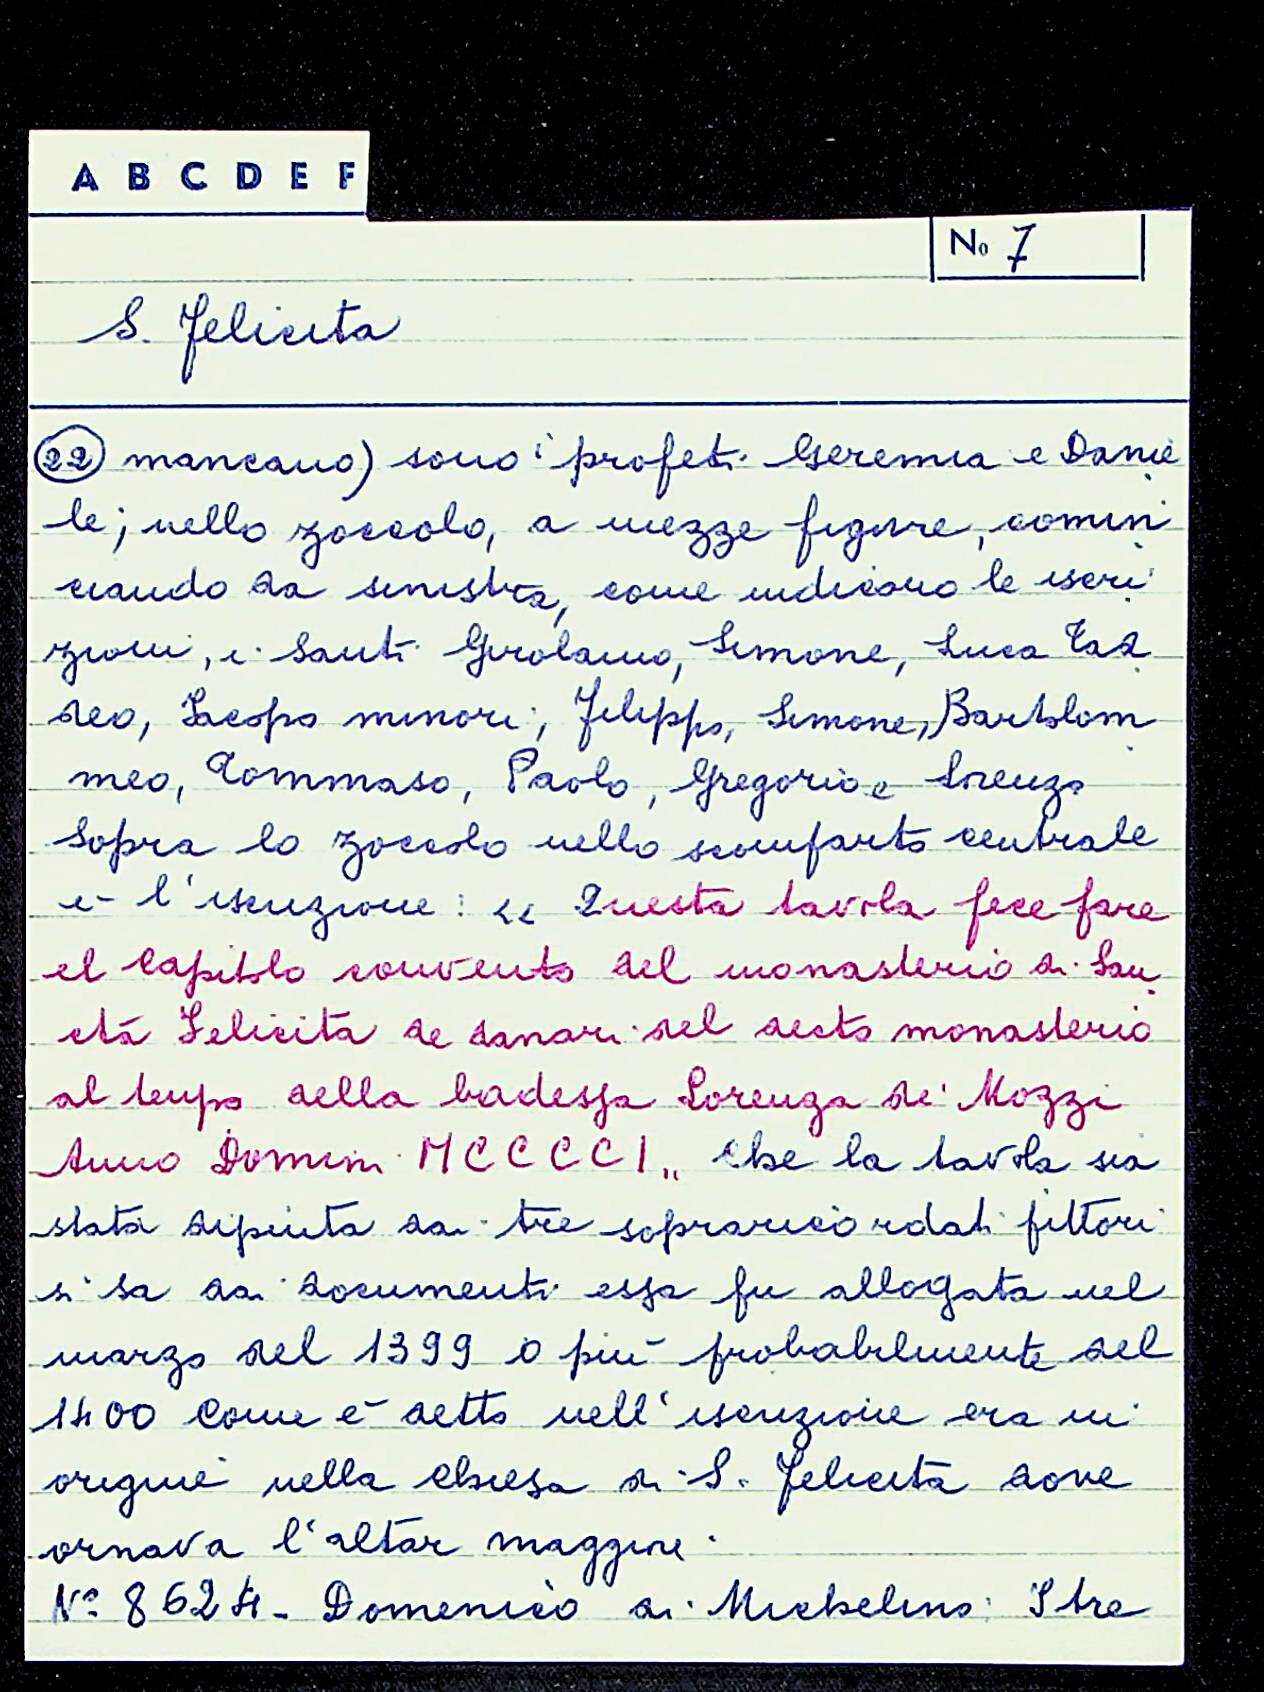 A B C D E F
No 7
S. Felicita
22 mancano) sono i profeti Geremia e Danie
le; nello zoccolo, a mezze figure, comin
ciando da sinistra, come indicano le iscri
zioni, i Santi Girolamo, Simone, Luca Tad
deo, Jacopo minori, Filippo, Simone, Bartolom
meo, Tommaso, Paolo, Gregorio e Lorenzo
Sopra lo zoccolo nello scomparto centrale
è l'iscrizione: << Questa tavola fece fare
el Capitolo convento del monasterio di San
cta Felicita de danari del decto monasterio
al tempo della badessa Lorenza de' Mozzi
Anno Domini MCCCCI,, Che la tavola sia
stata dipinta dai tre sopraricordati pittori
si sa dai documenti essa fu allogata nel
marzo del 1399 o più probabilmente del
1400 Come è detto nell'iscrizione era in
origine nella Chiesa di S. Felicita dove
ornava l'altar maggiore.
No 8624 - Domenico di Michelino: I tre